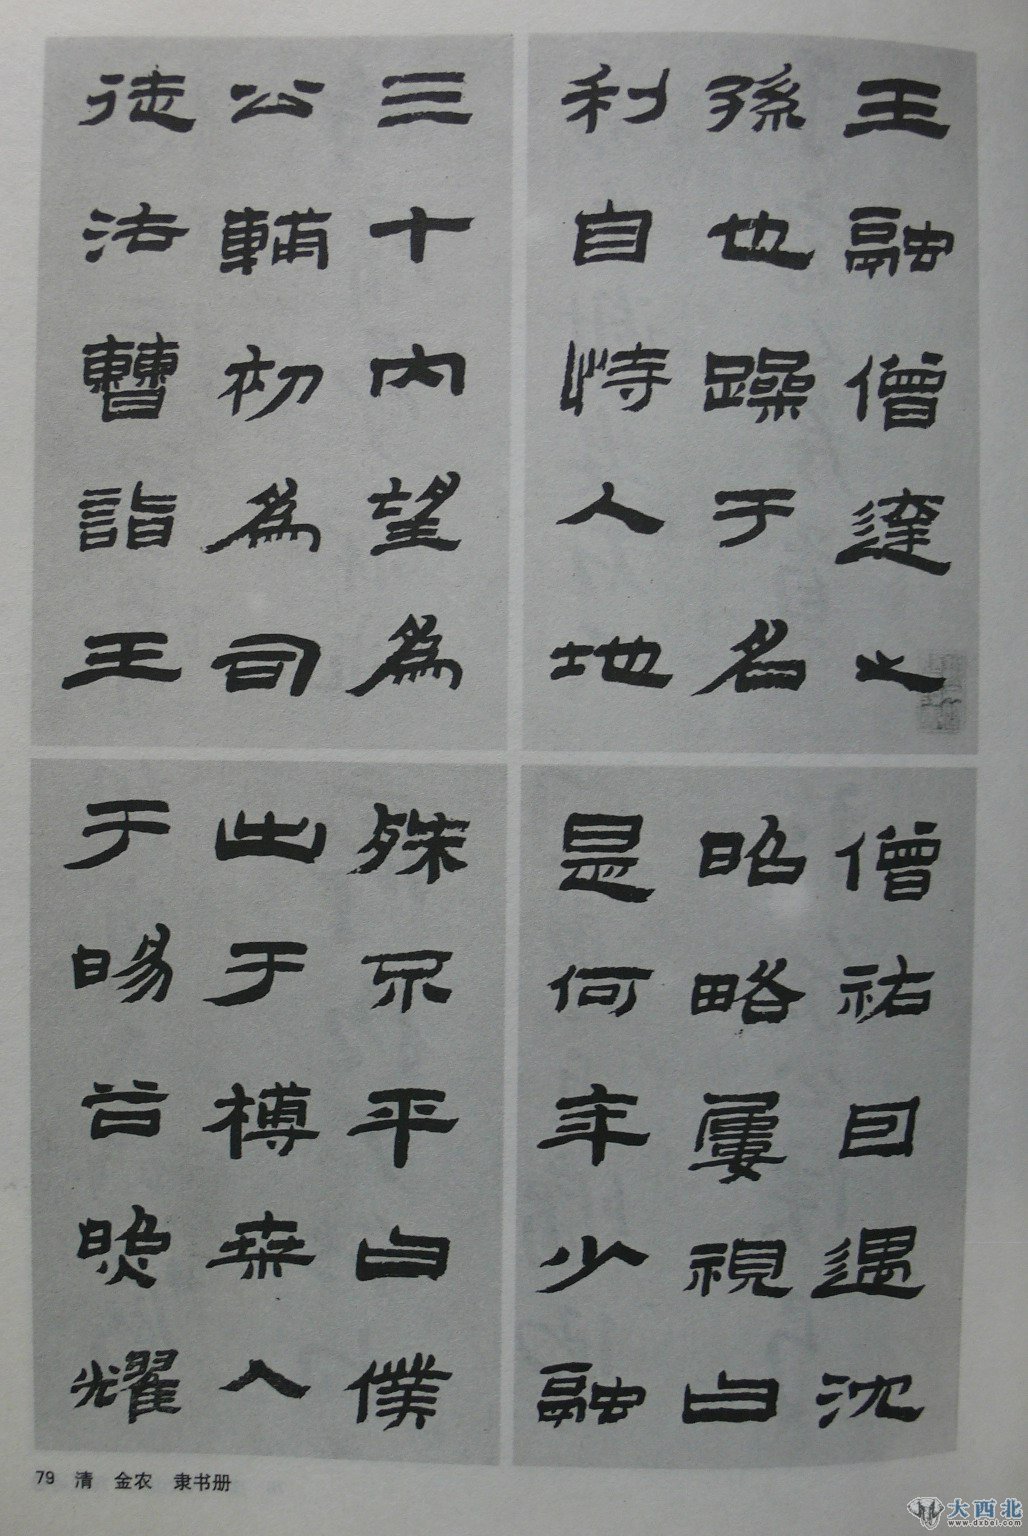 王融僧達之
孫也躁于名
利自恃人地
三十內望為
公輔初為司
徒法曹詣王
僧祐因遇沈
昭略屢視曰
是何年少融
殊不平曰僕
出于榑桑入
于暘谷照耀
79 清 金农 隶书册
大西北
www.dxbei.com